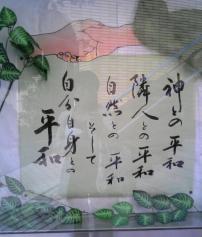 神との平和
隣人との平和
自然との平和
そして
自分自身との
平和